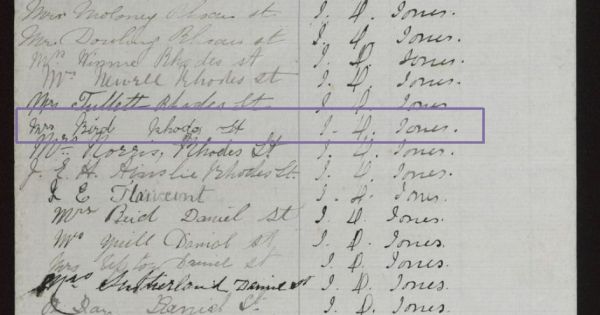 Mrs Moloney Rhodes st I. D. Jones.
Mrs Dowling Rhodes st I. D. Jones.
Mrs Winnie Rhodes st I. D. Jones.
Mrs Newell Rhodes St I. D. Jones.
Mrs Tullett Rhodes St I. D. Jones
Mrs Bird Rhods St I. D. Jones.
Mrs Norris, Rhodes St I. D. Jones.
J. E. H. Ainslie Rhodes St. I. D. Jones.
E I. D. Jones.
Mrs Reid Daniel St I. D. Jones.
Mrs Neill Daniel st I. D. Jones.
Mrs Upton Daniel st I. D. Jones.
Mrs Sutherland Daniel st I. D. Jones.
Daniel St. I. D. Jones.